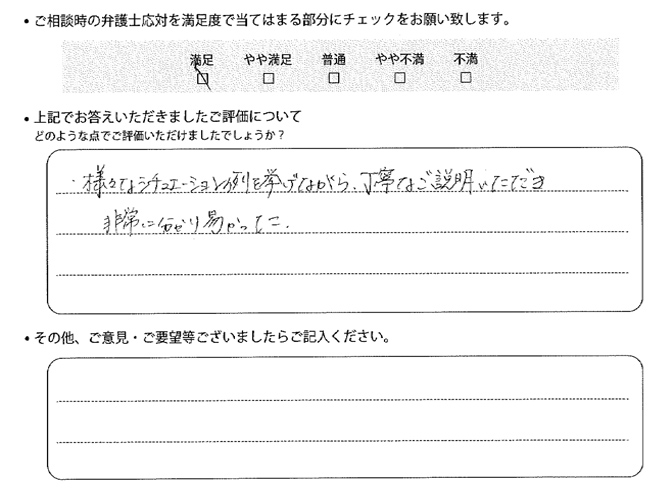 • ご相談時の弁護士応対を満足度で当てはまる部分にチェックをお願い致します。
満足 やや満足 普通 やや不満 不満
□ □ □ □ □
• 上記でお答えいただきましたご評価について
どのような点でご評価いただけましたでしょうか？
・様々なシチュエーション例を挙げながら、丁寧なご説明いただき
非常に分かり易かった。
• その他、ご意見・ご要望等ございましたらご記入ください。